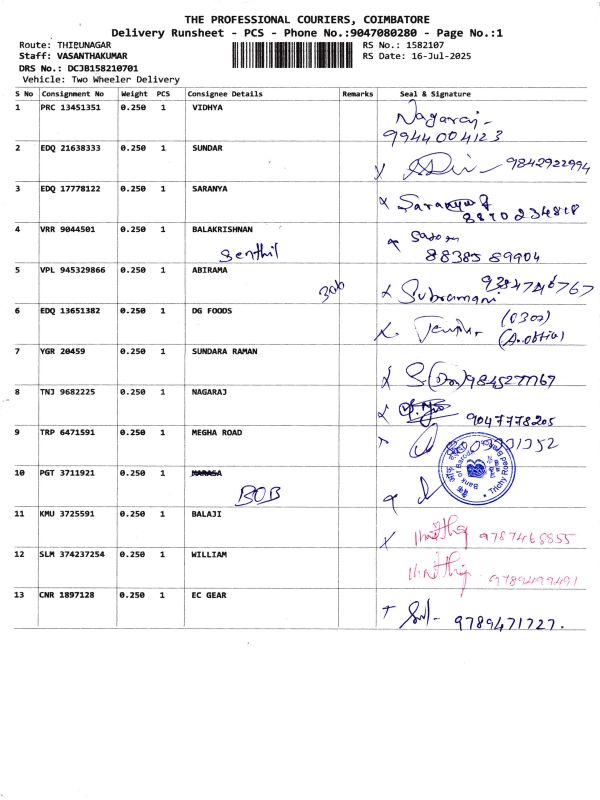 THE PROFESSIONAL COURIERS, COIMBATORE
Delivery Runsheet - PCS - Phone No.:9047080280 - Page No.:1
Route: THIRUNAGAR RS No.: 1582107
Staff: VASANTHAKUMAR RS Date: 16-Jul-2025
DRS No.: DCJB158210701
Vehicle: Two Wheeler Delivery
S No Consignment No Weight PCS Consignee Details Remarks Seal & Signature
1 PRC 13451351 0.250 1 VIDHYA Nagaraj -
9944004123
2 EDQ 21638333 0.250 1 SUNDAR 9842922994
3 EDQ 17778122 0.250 1 SARANYA Saranya
8870234818
4 VRR 9044501 0.250 1 BALAKRISHNAN
Senthil 8838589904
5 VPL 945329866 0.250 1 ABIRAMA Subramani 9384746767
6 EDQ 13651382 0.250 1 DG FOODS
7 YGR 20459 0.250 1 SUNDARA RAMAN
8 TNJ 9682225 0.250 1 NAGARAJ 9047778205
9 TRP 6471591 0.250 1 MEGHA ROAD
10 PGT 3711921 0.250 1
BOB
Bank of Baroda
Trichy Road
11 KMU 3725591 0.250 1 BALAJI 9787468855
12 SLM 374237254 0.250 1 WILLIAM 9789499491
13 CNR 1897128 0.250 1 EC GEAR 9789471727.